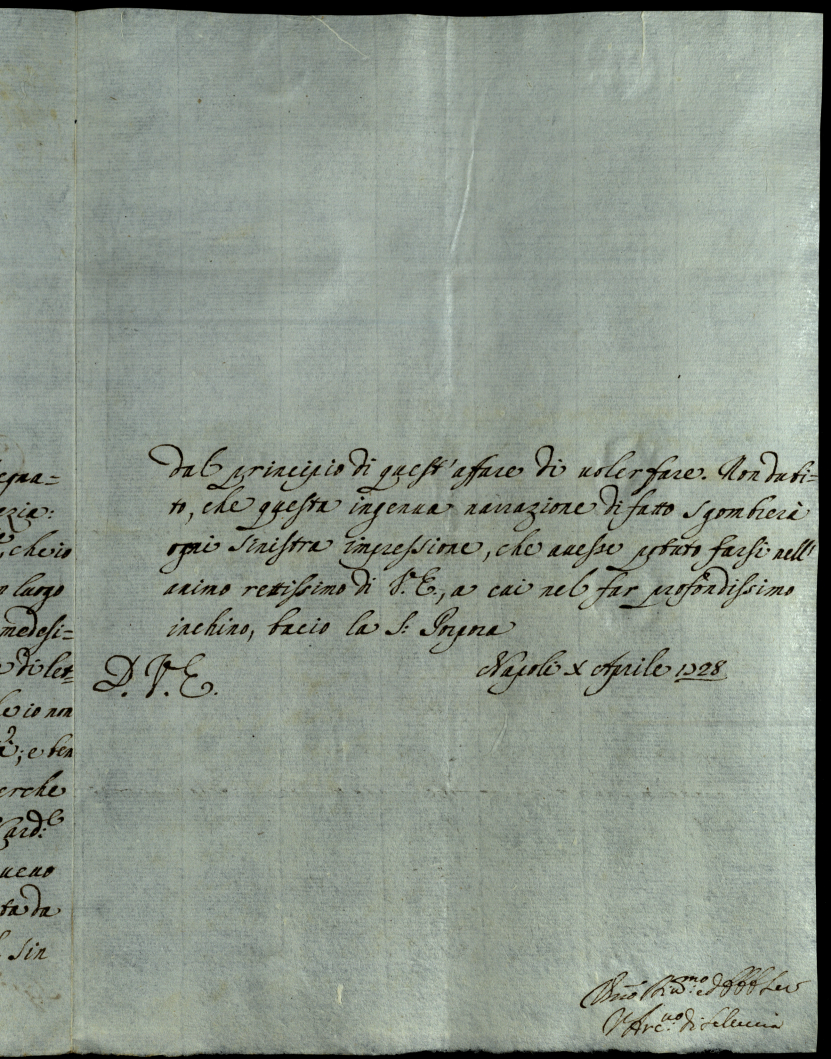 egna=
azia:
, che io
n luogo
medesi=
e di let=
le io non
; e ben
erche
Card.^e
ueno
ta da
sin
dal principio di quest'affare di uoler fare. Non dubi=
to, che questa ingenua narrazione di fatto sgombierà
ogni sinistra impressione, che auesse potuto farsi nell'
animo rettissimo di V.E., a cui nel far profondissimo
inchino, bacio la S. Porpora
D. V. E. Napoli X Aprile 1728
Vmo ed Ser
L'Arc.uo di Seleucia